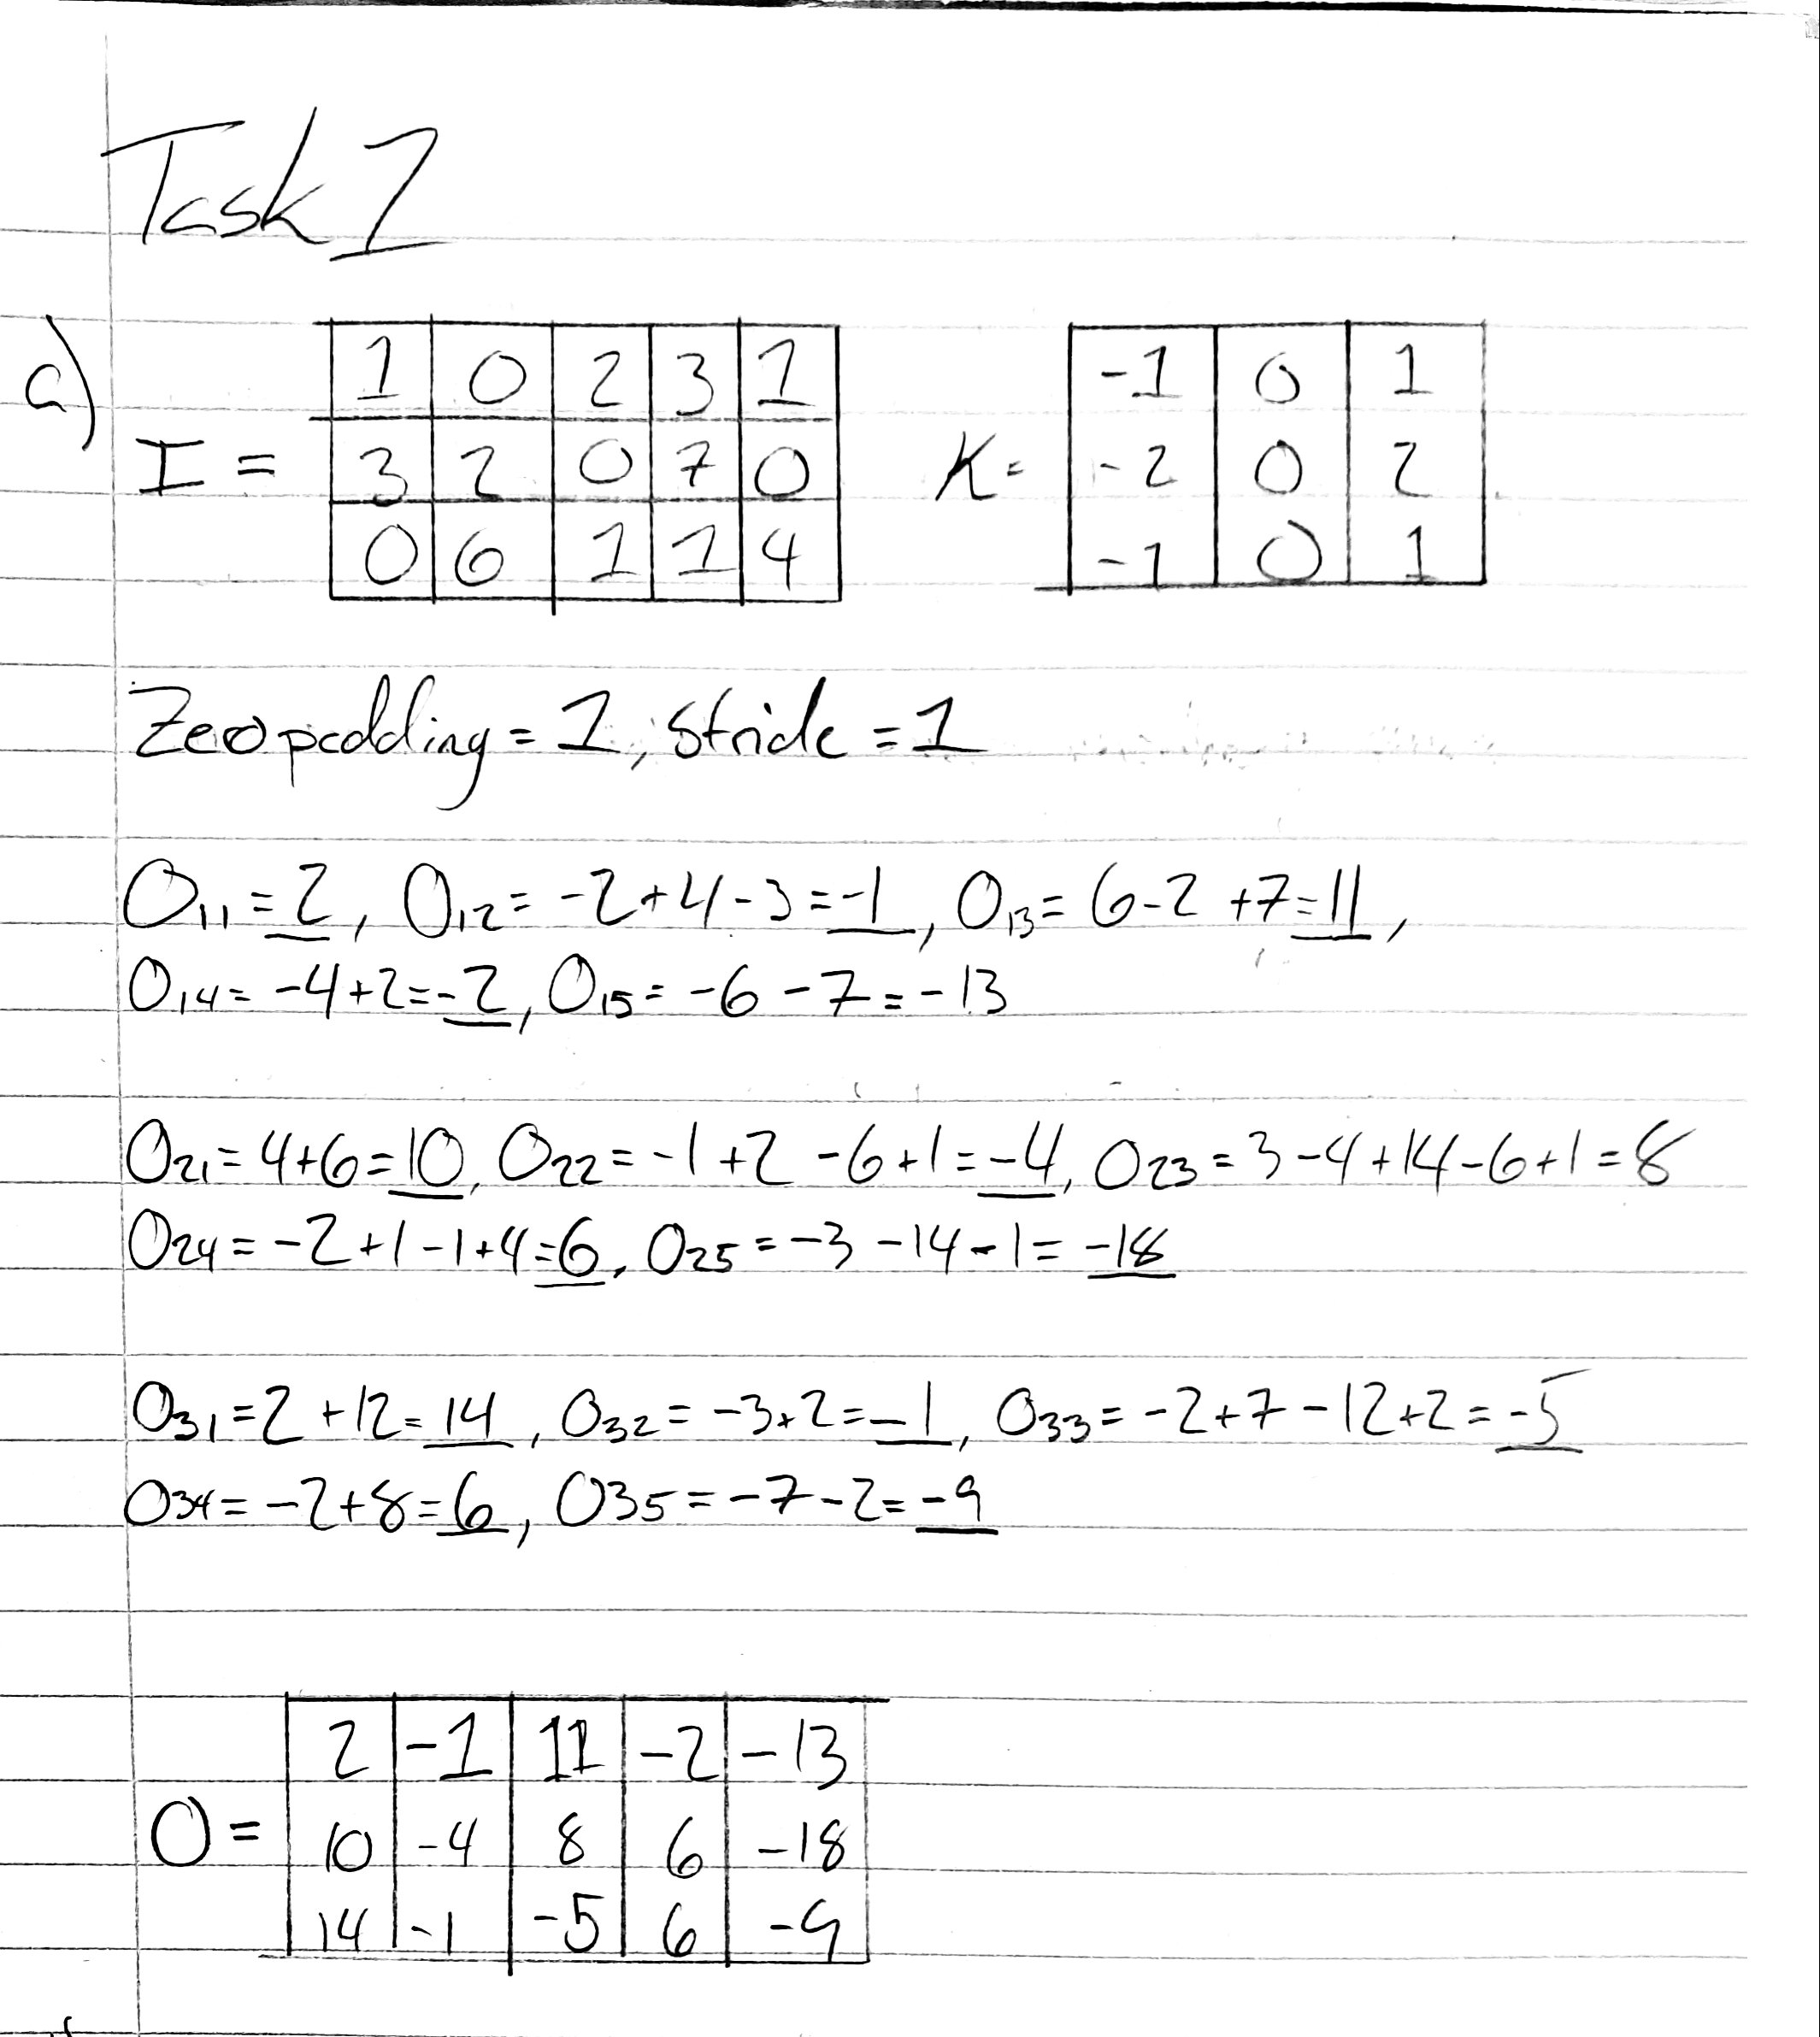 Task 1
a)
I =
1 0 2 3 1
3 2 0 7 0
0 6 1 1 4
K =
-1 0 1
-2 0 2
-1 0 1
Zero padding = 1, stride = 1
O11 = 2, O12 = -2+4-3 = -1, O13 = 6-2+7 = 11,
O14 = -4+2 = -2, O15 = -6-7 = -13
O21 = 4+6 = 10, O22 = -1+2-6+1 = -4, O23 = 3-4+14-6+1 = 8
O24 = -2+1-1+4 = 6, O25 = -3-14-1 = -18
O31 = 2+12 = 14, O32 = -3+2 = -1, O33 = -2+7-12+2 = -5
O34 = -2+8 = 6, O35 = -7-2 = -9
O =
2 -1 11 -2 -13
10 -4 8 6 -18
14 -1 -5 6 -9